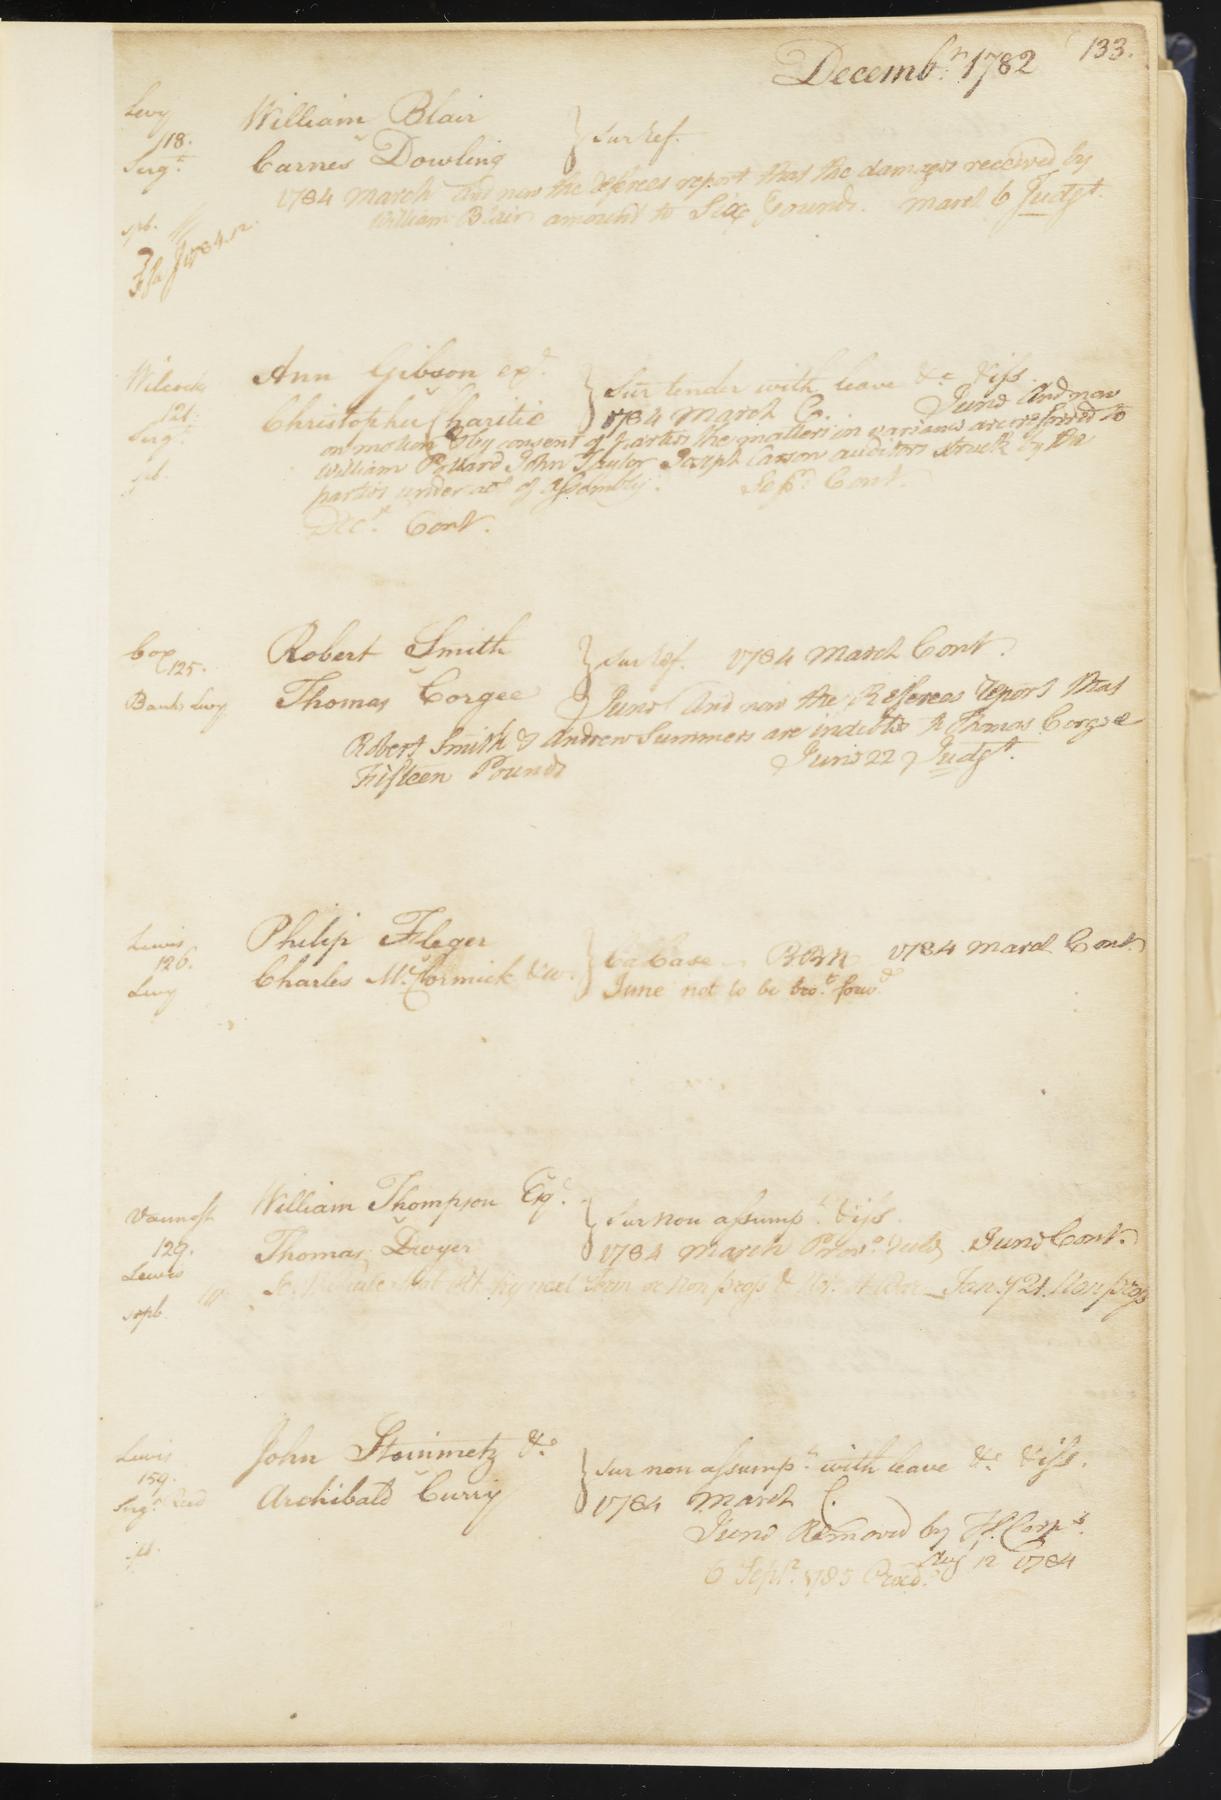 Decembr. 1782 133.
Levy William Blair
118. } Sur ref.
Sergt. v Carnes Dowling
1784 March And now the Referees report that the damages received by
William Blair amount to Six Pounds. March 6 Judgt.
Ann Gibson exr.
Wilcock } Sur tender with leave &c &iss.
121. Christopher Charitie 1784 March C. June And now
Sergt. on motion & by consent of parties the matters in variance are referred to
William Pollard John Taylor Joseph Carson auditors struck by the
parties under act of Assembly. Sepr. Cont.
Decr. Cont.
Cox Robert Smith
125. } Sur ref. 1784 March Cont.
Bank Levy v Thomas Corgee June And now the Referees report that
Robert Smith & Andrew Summers are indebted to Thomas Corgee
Fifteen Pounds June 22 Judgt.
Lewis Philip Fleger
126. } Ca Case 1784 March Cont.
Levy v Charles McCormick &ux. June not to be bro.t forwd.
William Thompson Esqr.
Vannost } Sur non assumpt. &iss.
129. Thomas Dwyer 1784 March June Cont.
Lewis next Term or Non pross Jany 21. Non pross
Lewis John Steinmetz &c
159. } Sur non assumpt. with leave &c &iss.
Sergt. Reed Archibald Curry 1784 March C.
June Removed by H. Corps.
Augt 12 1784
6 Sepr. 1785 Proced.